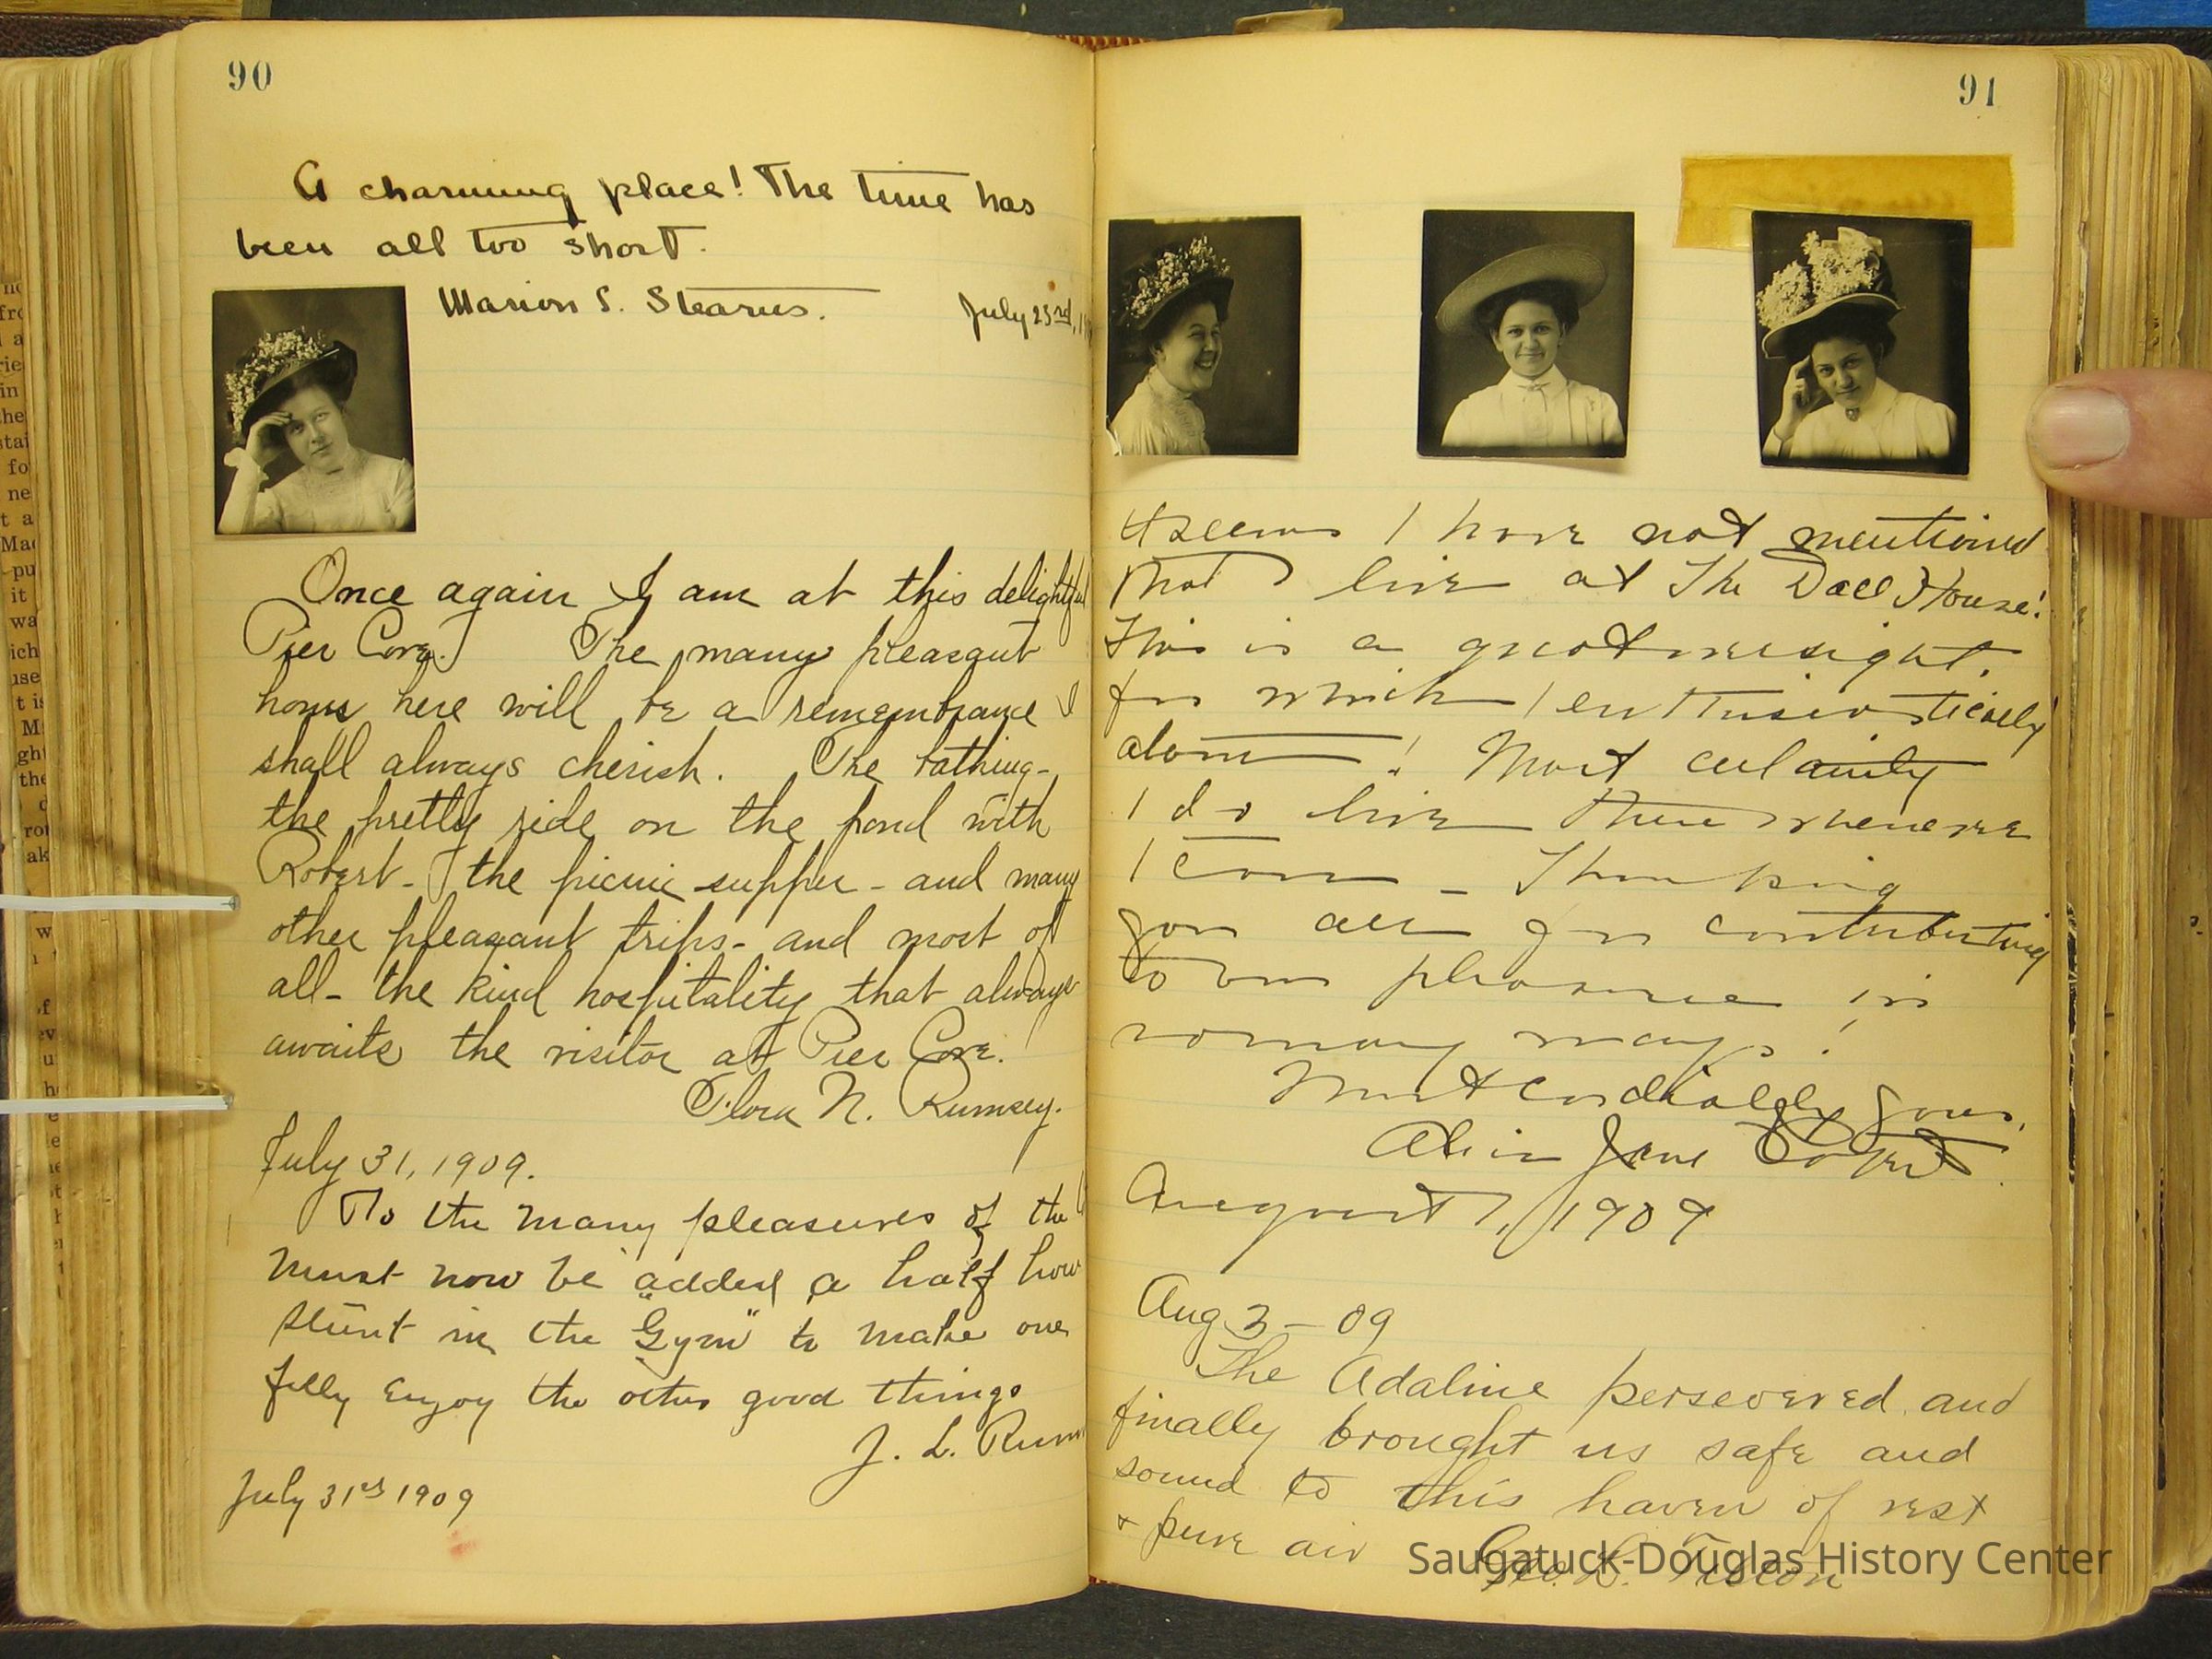 90
A charming place! The time has
been all too short.
Marion S. Stearns.
July 23rd, 1
Once again I am at this delightful
Pier Cove. The many pleasant
hours here will be a remembrance I
shall always cherish. The bathing-
the pretty ride on the pond with
Robert - the picnic supper - and many
other pleasant trips - and most of
all - the kind hospitality that always
awaits the visitor at Pier Cove.
Flora N. Rumsey.
July 31, 1909.
To the many pleasures of the
must now be added a half hour
stunt in the "Gym" to make one
fully enjoy the other good things
J. L. Rum
July 31st 1909
91
It seems I have not mentioned
that I live at The Doll House!
This is a great oversight,
for which I enthusiastically
atone! Most certainly
I do live there whenever
I come - Thanking
you all for contributing
to our pleasure in
so many ways!
Most cordially yours,
Jane
August 1, 1909
Aug 3 - 09
The Adaline persevered and
finally brought us safe and
sound to this haven of rest
& pure air
Geo. L.
Saugatuck-Douglas History Center